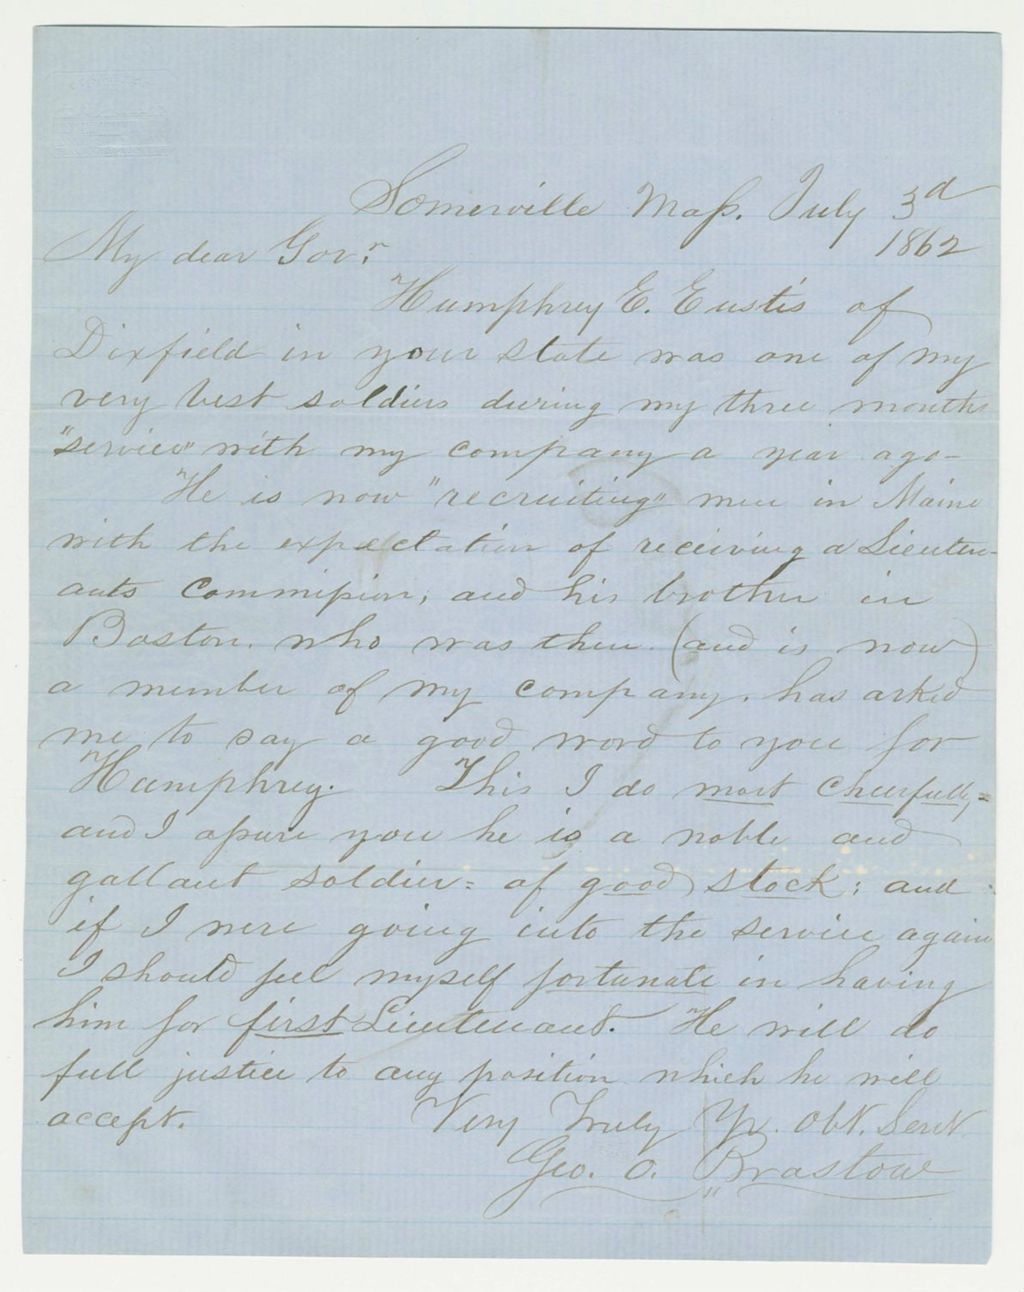 Somerville Mass. July 3d
1862
My dear Govr.
Humphrey E. Eustis of
Dixfield in your state was one of my
very best soldiers during my three months
"service" with my company a year ago—
He is now "recruiting" men in Maine
with the expectation of receiving a Lieuten-
ants Commission, and his brother in
Boston, who was then (and is now)
a member of my company, has asked
me to say a good word to you for
Humphrey. This I do most cheerfully=
and I assure you he is a noble and
gallant soldier= of good stock: and
if I were going into the service again
I should feel myself fortunate in having
him for first Lieutenant. He will do
full justice to any position which he will
accept. Very Truly Yr. Obt. Servt.
Geo. O. Brastow